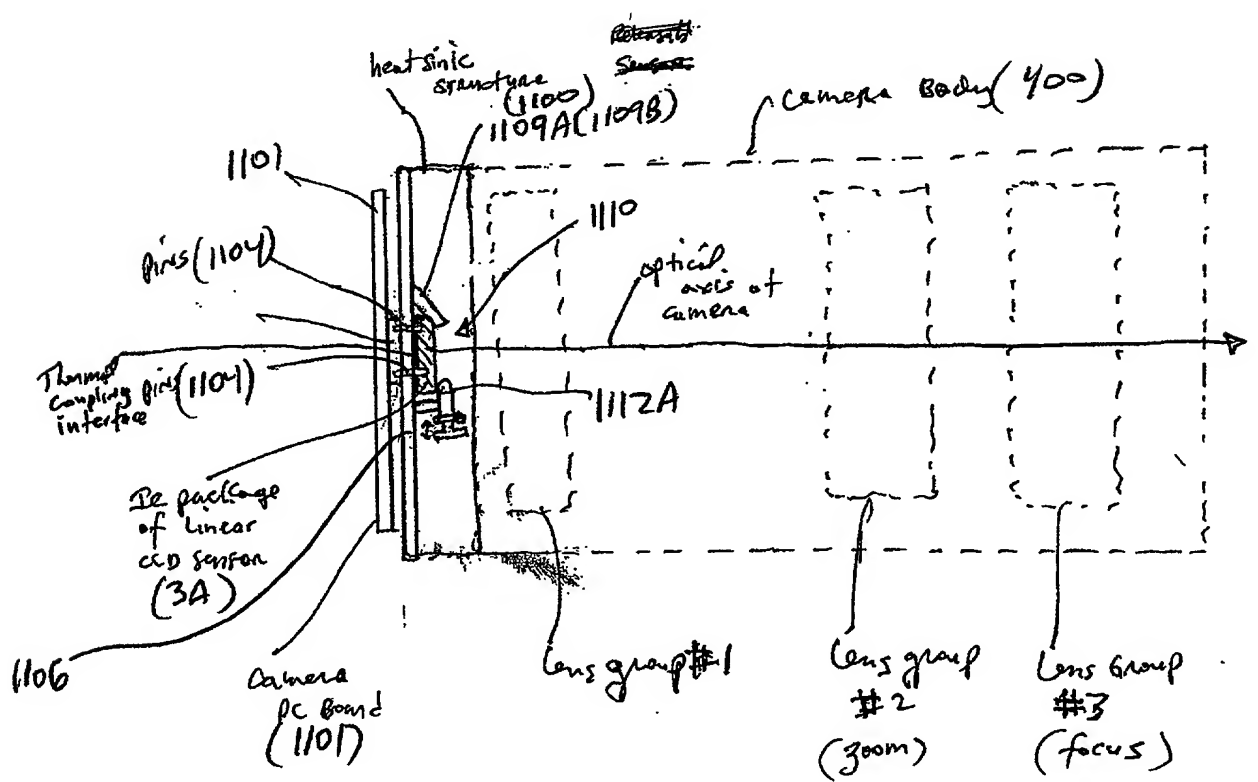 heatsinic
structure
(1100)
1109A(1109B)
camera Body(400)
1101
1110
pins(1104)
optical
axis of
camera
Thermal
coupling
interface
pins(1104)
1112A
Ic package
of Linear
CCD sensor
(3A)
1106
camera
PC Board
(1101)
Lens group#1
Lens group
#2
(zoom)
Lens Group
#3
(focus)